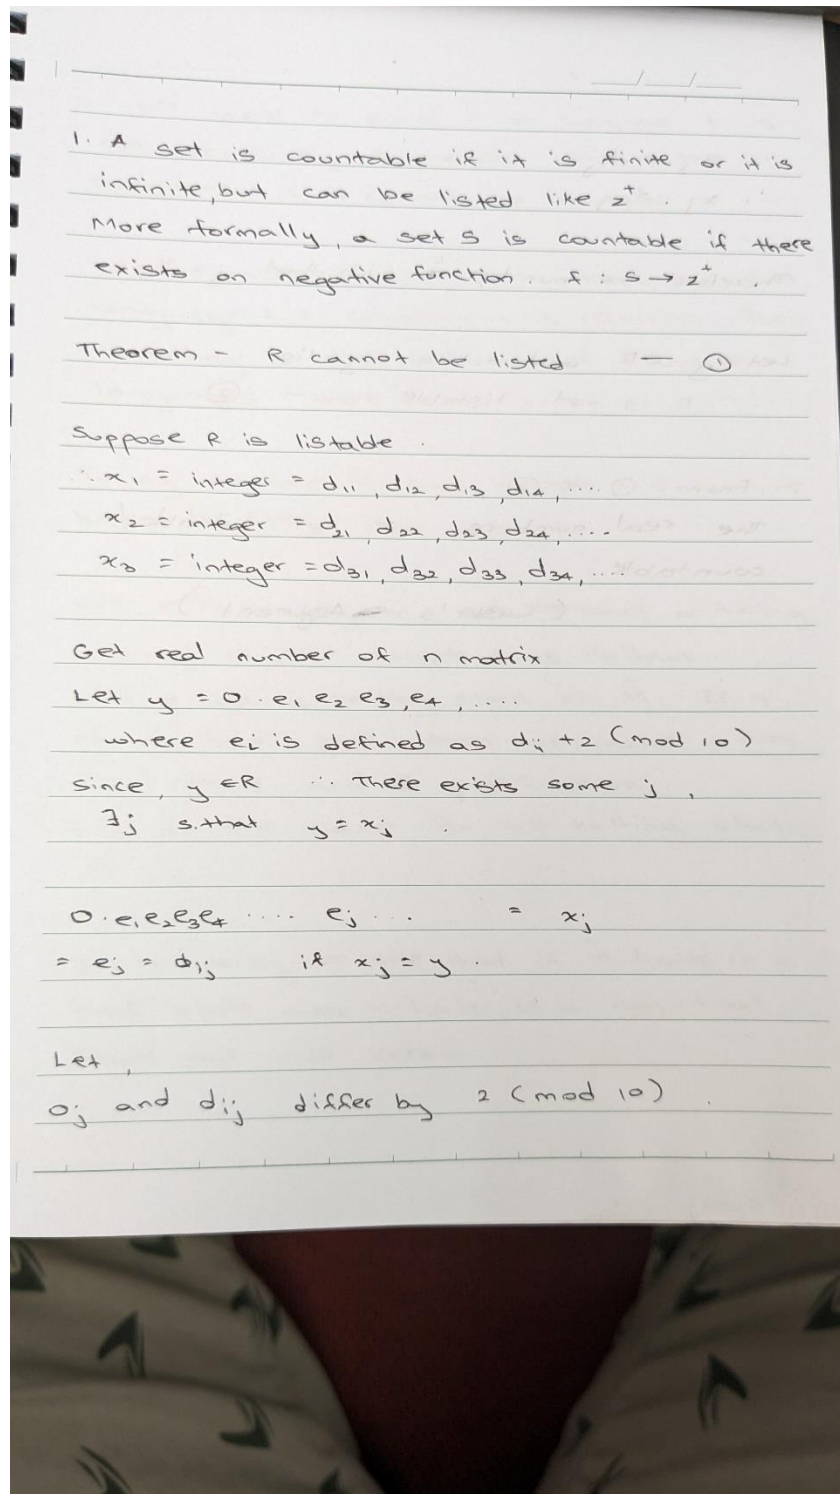 1. A set is countable if it is finite or it is
infinite, but can be listed like z⁺ .
More formally, a set S is countable if there
exists on negative function. f : s → z⁺ .
Theorem - R cannot be listed — ①
Suppose R is listable .
∴ x₁ = integer = d₁₁, d₁₂, d₁₃, d₁₄, ....
x₂ = integer = d₂₁ d₂₂, d₂₃, d₂₄, ....
x₃ = integer = d₃₁, d₃₂, d₃₃, d₃₄, ....
Get real number of n matrix
Let y = 0 . e₁ e₂ e₃, e₄, ....
where eᵢ is defined as dᵢᵢ +2 (mod 10)
since, y ∈R ∴ There exists some j,
∃j s.that y = xⱼ .
0.e₁e₂e₃e₄ .... eⱼ ... = xⱼ
= eⱼ = dⱼⱼ if xⱼ = y .
Let,
0ⱼ and dⱼⱼ differ by 2 (mod 10) .